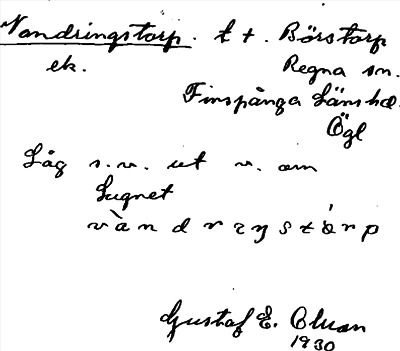 Vandringstorp. t +. Börstorp
ek. Regna sn.
Finspånga länshd.
Ögl
Låg s.v. ut v. om
Lugnet
vàndrɩŋstórp
Gustaf E.
1930